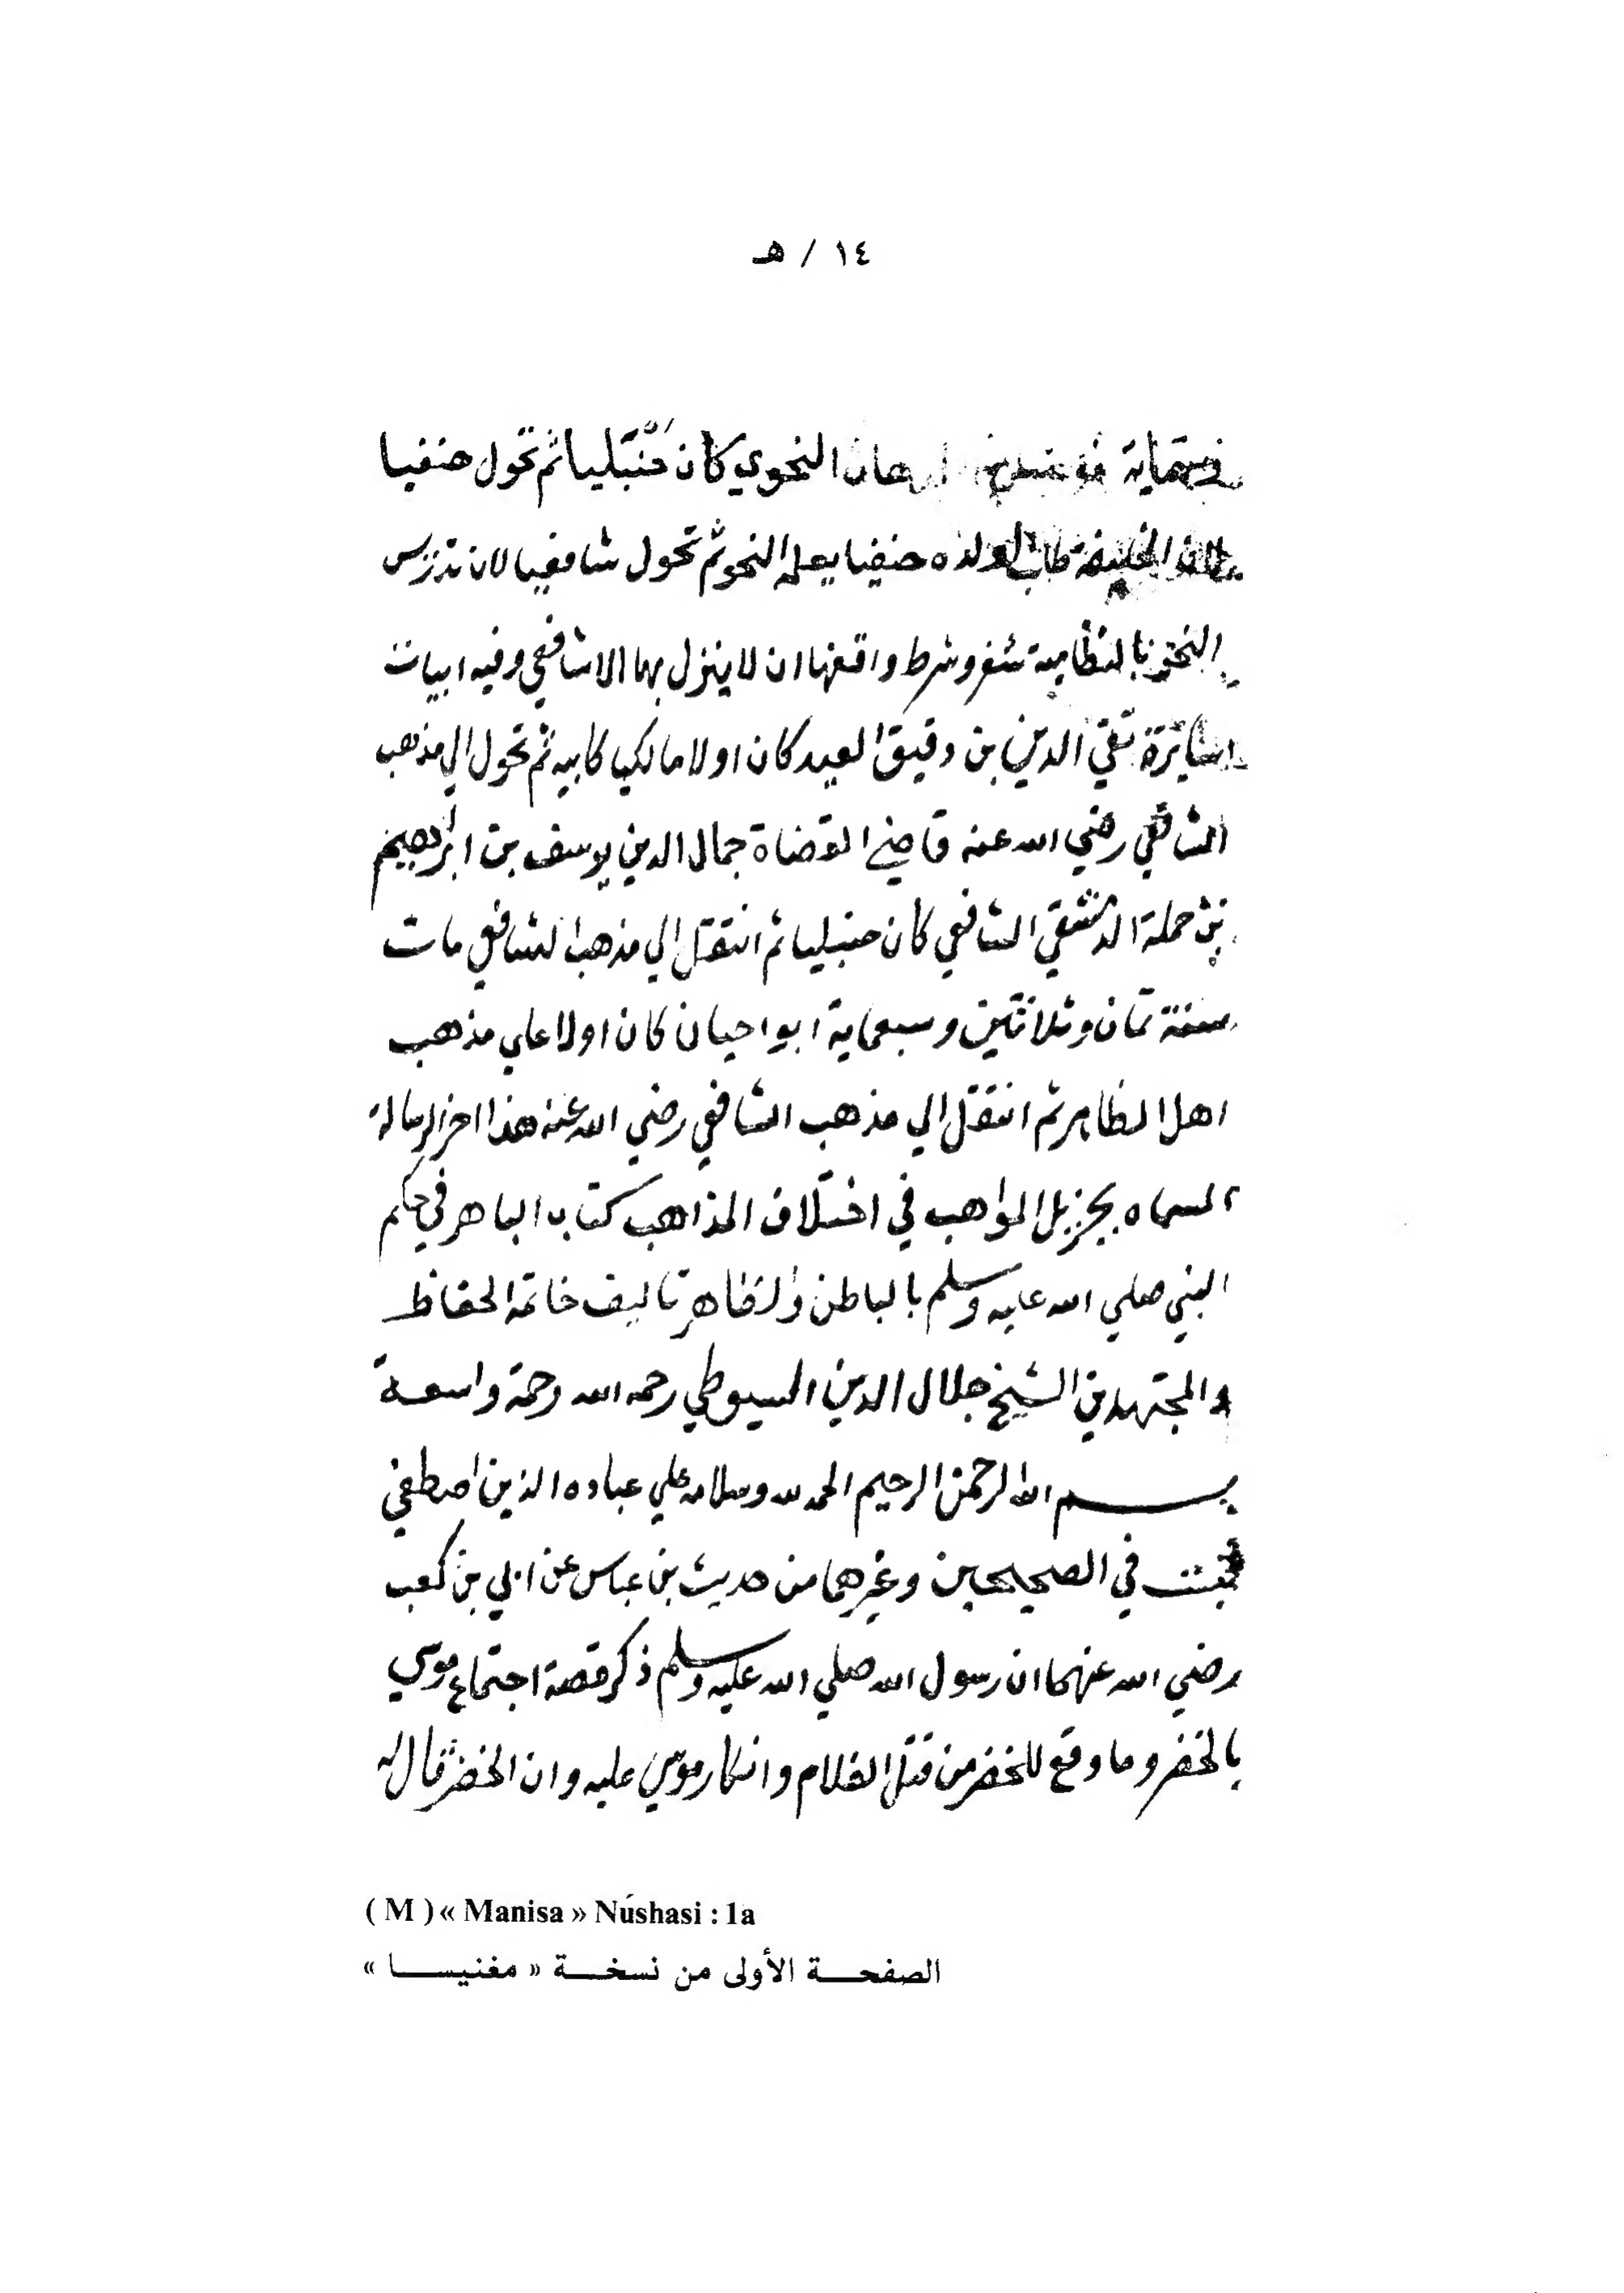 ١٤ / هـ
وستماية الدهان النحوي كان حنبليا ثم تحول حنفيا
الخليفة طلب لولده حنفيا يعلمه النحو ثم تحول شافعيا لان تدريس
النحو بالنظامية شغر وشرط واقفها ان لا ينزل بها الا شافعي وفيه ابيات
سائرة تقي الدين بن دقيق العيد كان اولا مالكيا كابيه ثم تحول الي مذهب
الشافعي رضي الله عنه قاضي القضاة جمال الدين يوسف بن ابراهيم
بن حملة الدمشقي الشافعي كان حنبليا ثم انتقل الي مذهب الشافعي مات
سنة ثمان وثلاثين وسبعماية ابوا حيان كان اولا علي مذهب
اهل الظاهر ثم انتقل الي مذهب الشافعي رضي الله عنه هذا اخر الرسالة
المسماه بجزيل المواهب في اختلاف المذاهب كتاب الباهر في حكم
النبي صلي الله عليه وسلم بالباطن والظاهر تاليف خاتمة الحفاظ
والمجتهدين الشيخ جلال الدين السيوطي رحمه الله رحمة واسعة
بسم الله الرحمن الرحيم الحمد لله وسلام علي عباده الذين اصطفي
ثبت في الصحيحين وغيرهما من حديث بن عباس عن ابي بن كعب
رضي الله عنهما ان رسول الله صلي الله عليه وسلم ذكر قصة اجتماع موسي
بالخضر وما وقع للخضر من قتل الغلام وانكار موسي عليه وان الخضر قال له
( M ) « Manisa » Núshasi : 1a
الصفحــة الأولى من نسخــة « مغنيســـا »